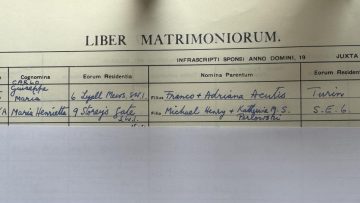 LIBER MATRIMONIORUM.
INFRASCRIPTI SPONSI ANNO DOMINI, 19 JUXTA
Cognomina Eorum Residentia Nomina Parentum Eorum Resi
CARLO
Giuseppe
Maria 6 Lyall Mews SW1. Filius Franco + Adriana Acutis Turin
Maria Henrietta 9 Storey's Gate Filia Michael Henry + Kathryn S.E.6.
SW1. Perlowski